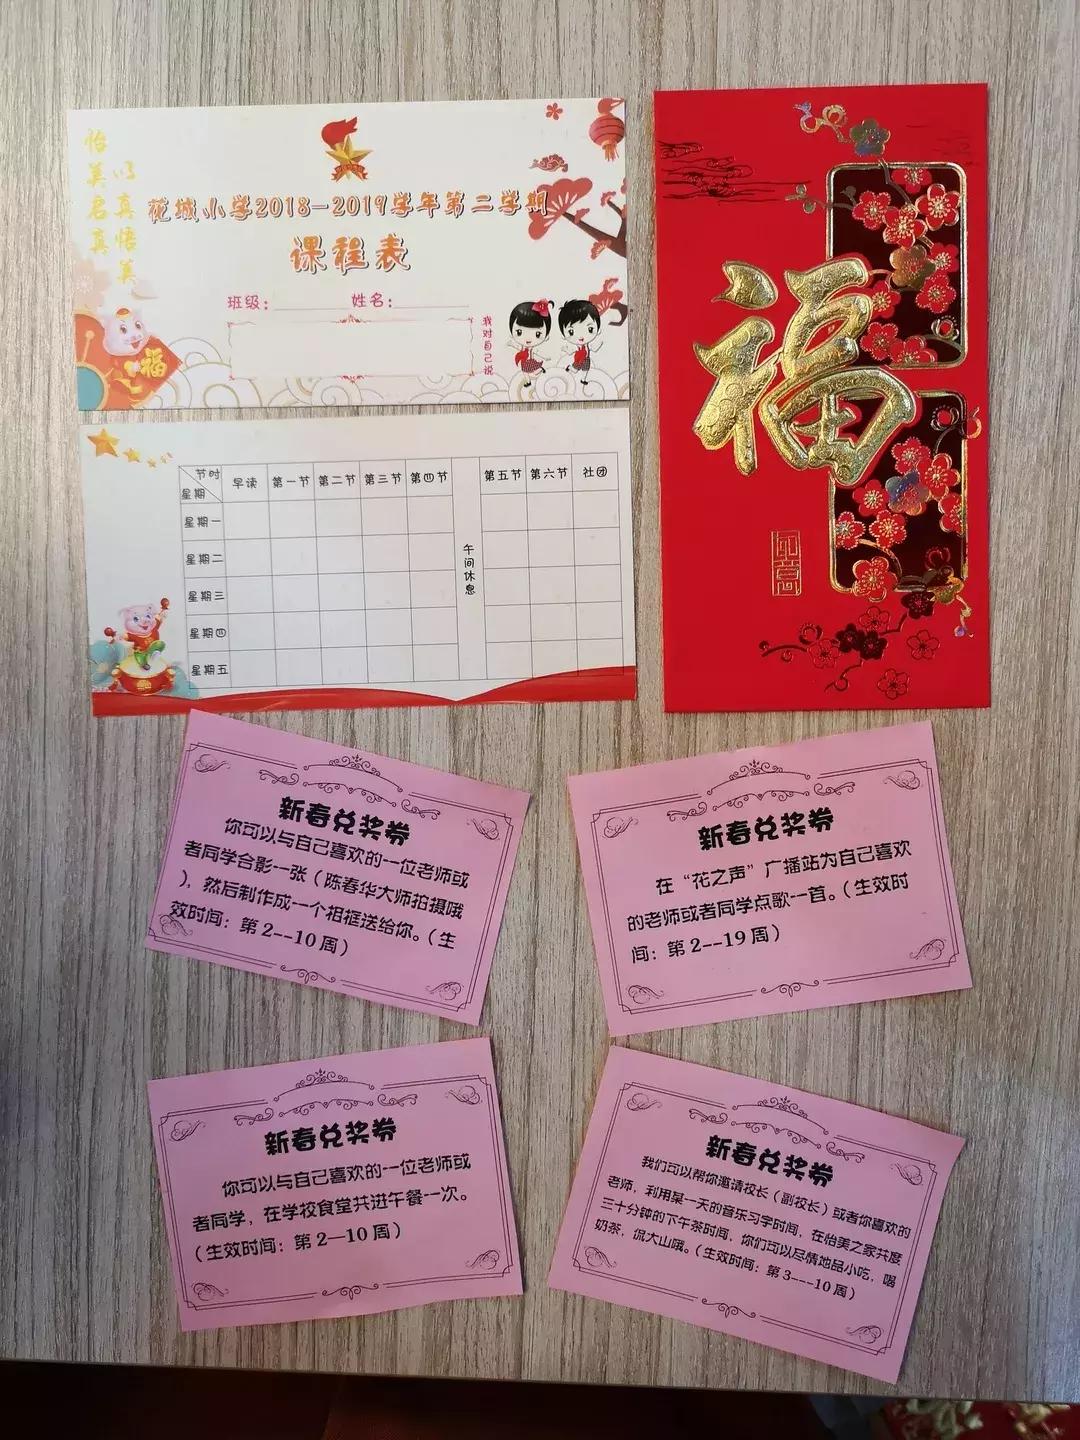 怡美启真
以真悟美
花城小学2018-2019学年第二学期
课程表
班级：
姓名：
我对自己说
福
福
如意
节时
星期
早读
第一节
第二节
第三节
第四节
第五节
第六节
社团
星期一
星期二
星期三
星期四
星期五
午间休息
新春兑奖券
你可以与自己喜欢的一位老师或
者同学合影一张（陈春华大师拍摄哦
），然后制作成一个相框送给你。（生
效时间：第2--10周）
新春兑奖券
在“花之声”广播站为自己喜欢
的老师或者同学点歌一首。（生效时
间：第2--19周）
新春兑奖券
你可以与自己喜欢的一位老师或
者同学，在学校食堂共进午餐一次。
（生效时间：第2—10周）
新春兑奖券
我们可以帮你邀请校长（副校长）或者你喜欢的
老师，利用某一天的音乐习字时间，在怡美之家共度
三十分钟的下午茶时间，你们可以尽情地品小吃，喝
奶茶，侃大山哦。（生效时间：第3---10周）